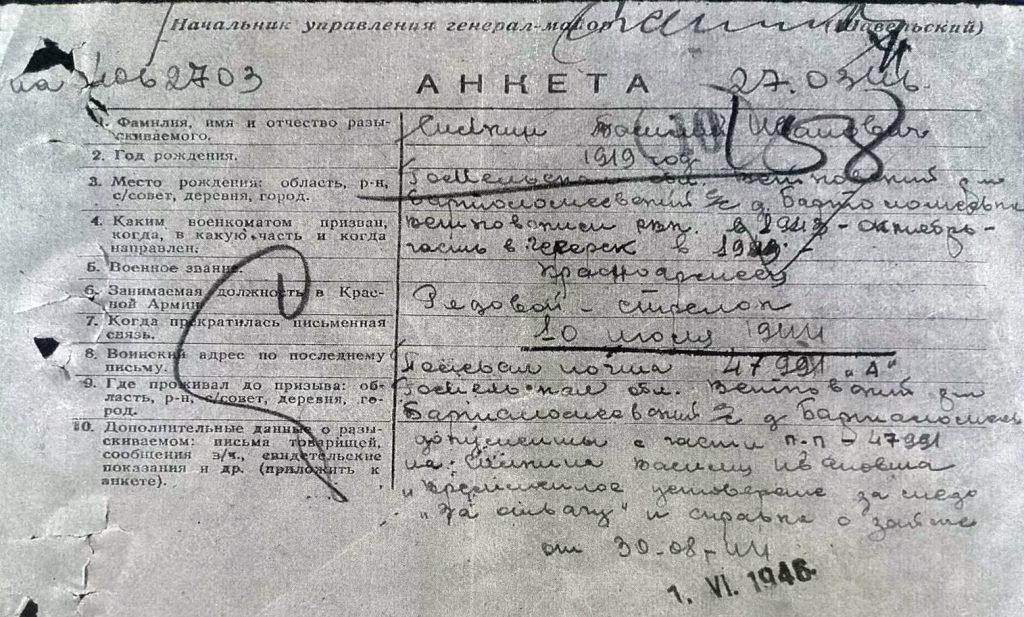 Начальник управления генерал-майор (Шавельский)
2703
АНКЕТА
27.03
158
1. Фамилия, имя и отчество разы-
скиваемого.
Василий Иванович
2. Год рождения.
1919 год
3. Место рождения: область, р-н,
с/совет, деревня, город.
Гомельская обл. Ветковский р-н
Бартоломеевский с/с д. Бартоломеевка
4. Каким военкоматом призван,
когда, в какую часть и когда
направлен.
Ветковским рвк. в 1943 - октябрь -
часть в Чечерск в
5. Военное звание.
Красноармеец
6. Занимаемая должность в Крас-
ной Армии
Рядовой - стрелок
7. Когда прекратилась письменная
связь.
10 июля 1944
8. Воинский адрес по последнему
письму.
Полевая почта 47991 „А"
9. Где проживал до призыва: об-
ласть, р-н, с/совет, деревня, го-
род.
Гомельская обл. Ветковский р-н
Бартоломеевский с/с д.
10. Дополнительные данные о разы-
скиваемом: письма товарищей,
сообщения з/ч., свидетельские
показания и др. (приложить к
анкете).
документы с части п-п - 47991
на Василия Ивановича
и за
„За отвагу" и справка о
от 30-08-44
1. VI. 1946.